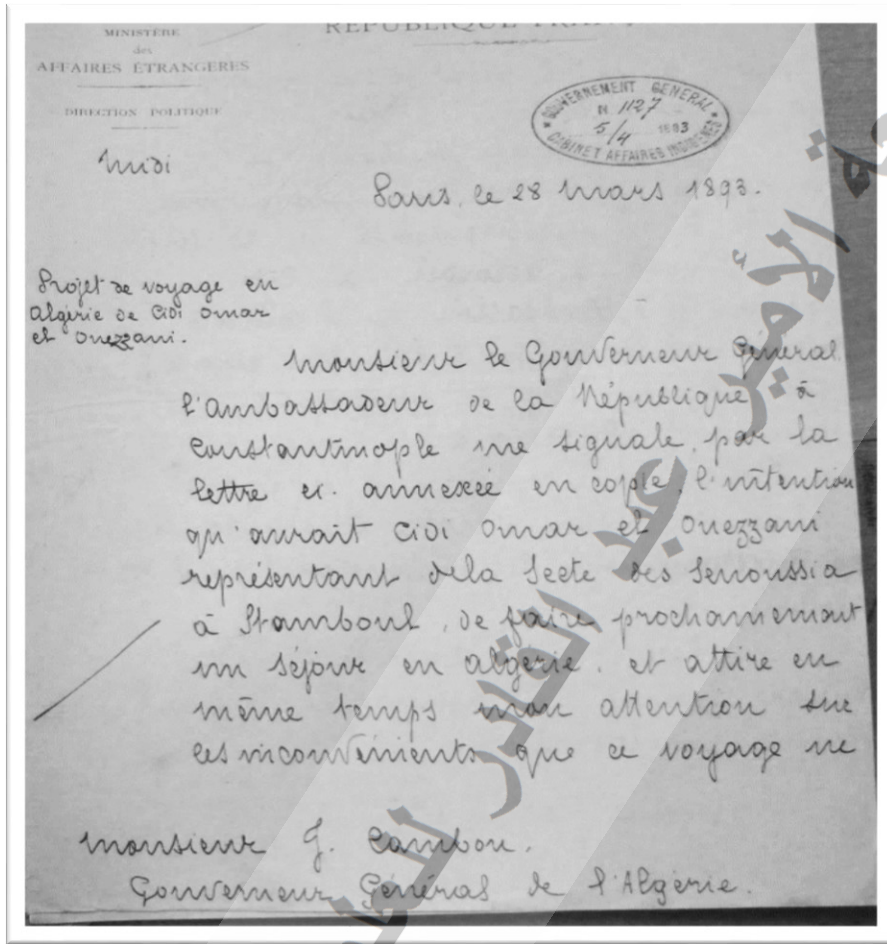 MINISTÈRE
des
AFFAIRES ÉTRANGÈRES
DIRECTION POLITIQUE
RÉPUBLIQUE
GOUVERNEMENT GÉNÉRAL
N 1127
5/4 1893
CABINET AFFAIRES INDIGÈNES
Midi
Paris, le 28 mars 1893.
Projet de voyage en
Algérie de Cidi Omar
el Ouezzani.
Monsieur le Gouverneur Général
l'Ambassadeur de la République à
Constantinople me signale, par la
lettre ci-annexée en copie, l'intention
qu'aurait Cidi Omar el Ouezzani
représentant de la Secte des Senoussia
à Stamboul, de faire prochainement
un séjour en Algérie. et attire en
même temps mon attention sur
les inconvénients que ce voyage ne
Monsieur J. Cambon.
Gouverneur Général de l'Algérie.
عبد القادر